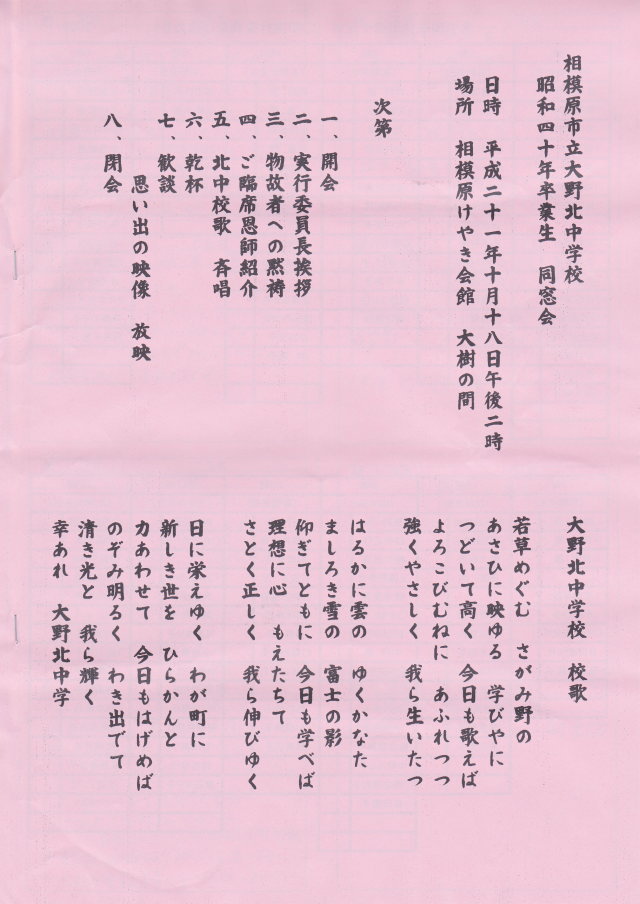 相模原市立大野北中学校
昭和四十年卒業生　同窓会
日時　平成二十一年十月十八日午後二時
場所　相模原けやき会館　大樹の間
次第
一、開会
二、実行委員長挨拶
三、物故者への黙祷
四、ご臨席恩師紹介
五、北中校歌　斉唱
六、乾杯
七、歓談
思い出の映像　放映
八、閉会
大野北中学校　校歌
若草めぐむ　さがみ野の
あさひに映ゆる　学びやに
つどいて高く　今日も歌えば
よろこびむねに　あふれつつ
強くやさしく　我ら生いたつ
はるかに雲の　ゆくかなた
ましろき雪の　富士の影
仰ぎてともに　今日も学べば
理想に心　もえたちて
さとく正しく　我ら伸びゆく
日に栄えゆく　わが町に
新しき世を　ひらかんと
力あわせて　今日もはげめば
のぞみ明るく　わき出でて
清き光と　我ら輝く
幸あれ　大野北中学